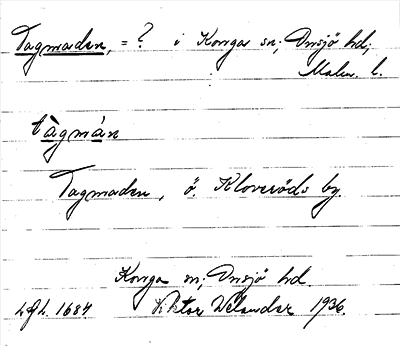 Tagmaden, = ? i Konga sn; Onsjö hd;
Malm. l.
tàgmán
Tagmaden, ö. Kloveröds by.
Konga sn; Onsjö hd.
L.G.L. 1684 Viktor Welander 1936.